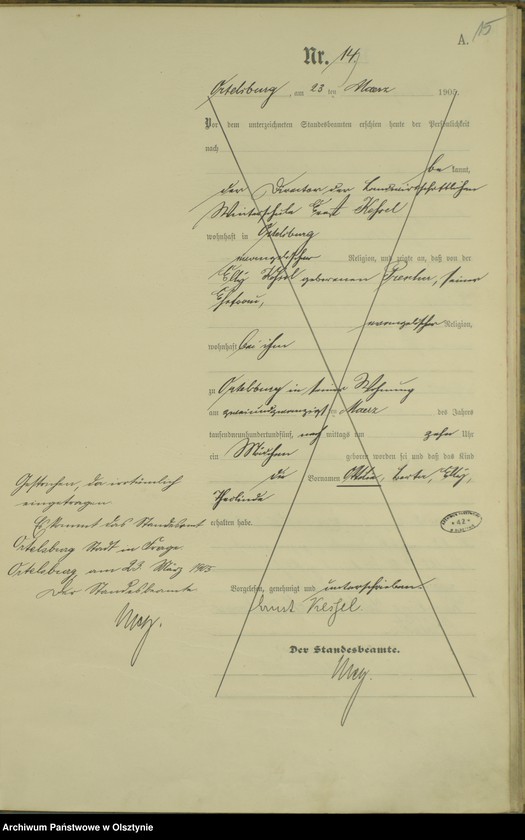 A. 15
Nr. 14
Ortelsburg, am 23 ten Maerz 1905.
Vor dem unterzeichneten Standesbeamten erschien heute der Persönlichkeit
nach
be kannt,
der Director der Landwirtschaftlichen
Winterschule Ernst Kessel
wohnhaft in Ortelsburg
evangelischer Religion, und zeigte an, daß von der
Elly Kessel geborenen, seiner
Ehefrau,
evangelischer Religion,
wohnhaft bei ihm
zu Ortelsburg in seiner Wohnung
am zweiundzwanzigsten Maerz des Jahres
tausendneunhundertundfünf, nach mittags um zehn Uhr
ein Mädchen geboren worden sei und daß das Kind
die Vornamen Berta, Elly,
erhalten habe.
Gestrichen, da irrtümlich
eingetragen
Es kommt das Standesamt
Ortelsburg Stadt in Frage
Ortelsburg am 23. März 1905
Der Standesbeamte
Vorgelesen, genehmigt und unterschrieben.
Ernst Kessel
Der Standesbeamte.
Archiwum Państwowe w Olsztynie